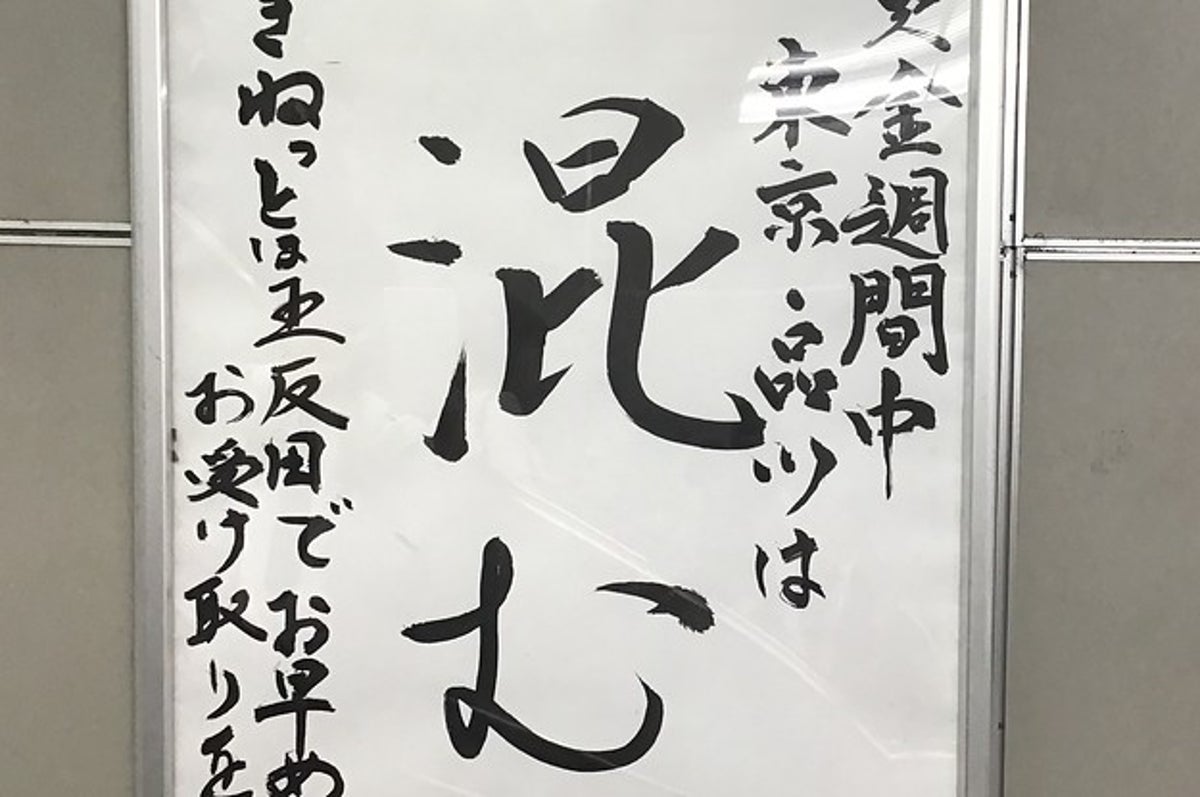 金週間中
東京 品川は
混む
きねっとは五反田でお早め
お受け取りを